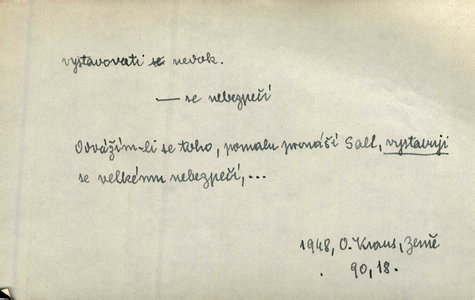 vystavovati se nedok.
— se nebezpečí
Odvážím-li se toho, pomalu pronáší Sall, vystavuji
se velkému nebezpečí,...
1948, O. Kraus, Země
90,18.